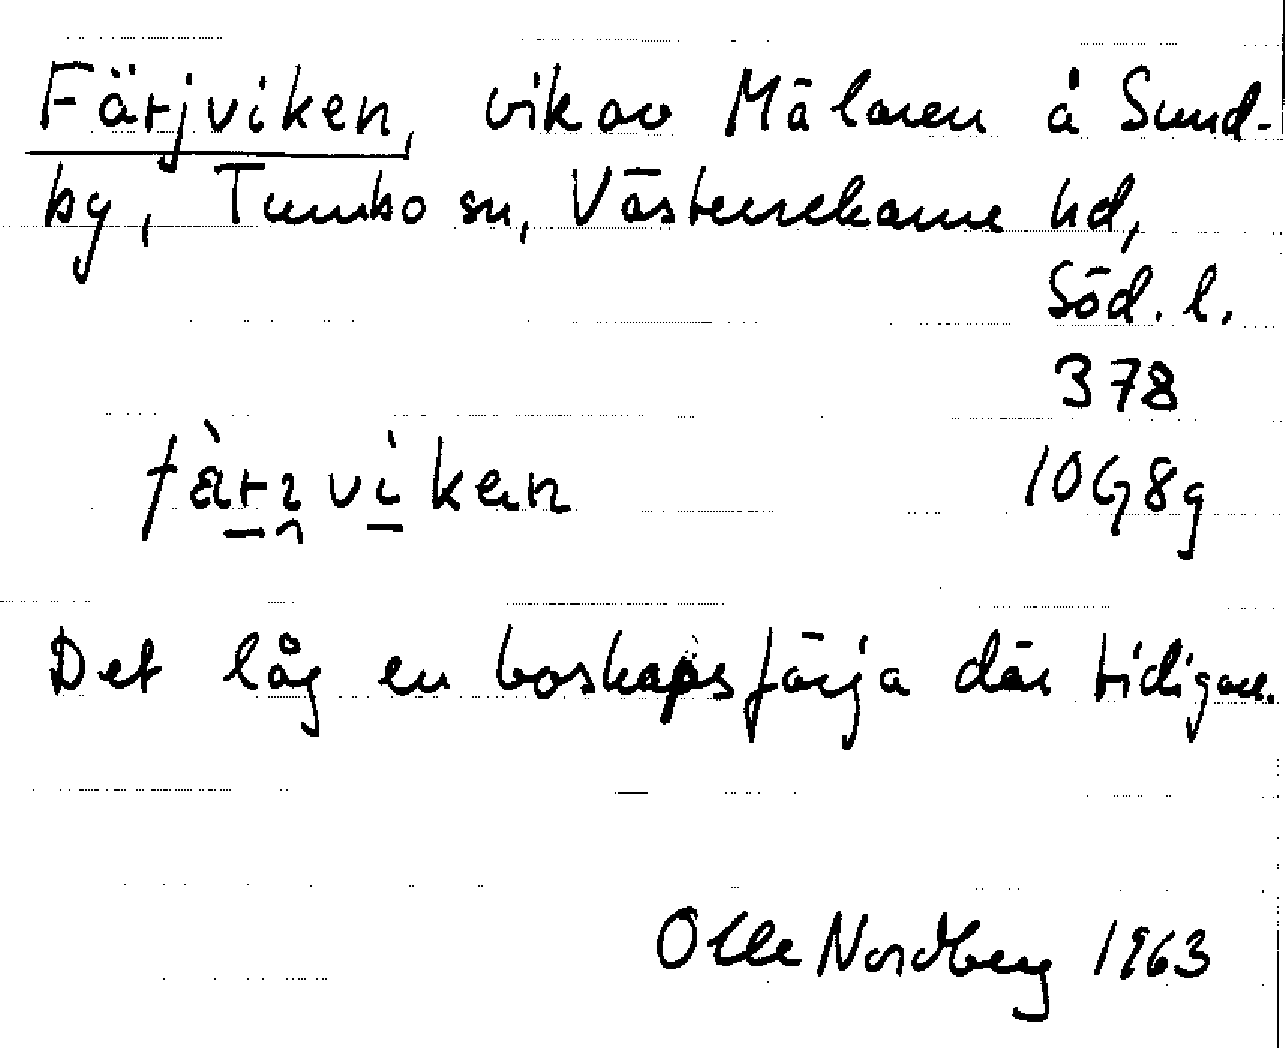 Färjviken, vik av Mälaren å Sund-
by, Tumbo sn, Västerrekarne hd,
Söd. l.
378
10G8g
Det låg en boskapsfärja där tidigare.
Olle Nordberg 1963